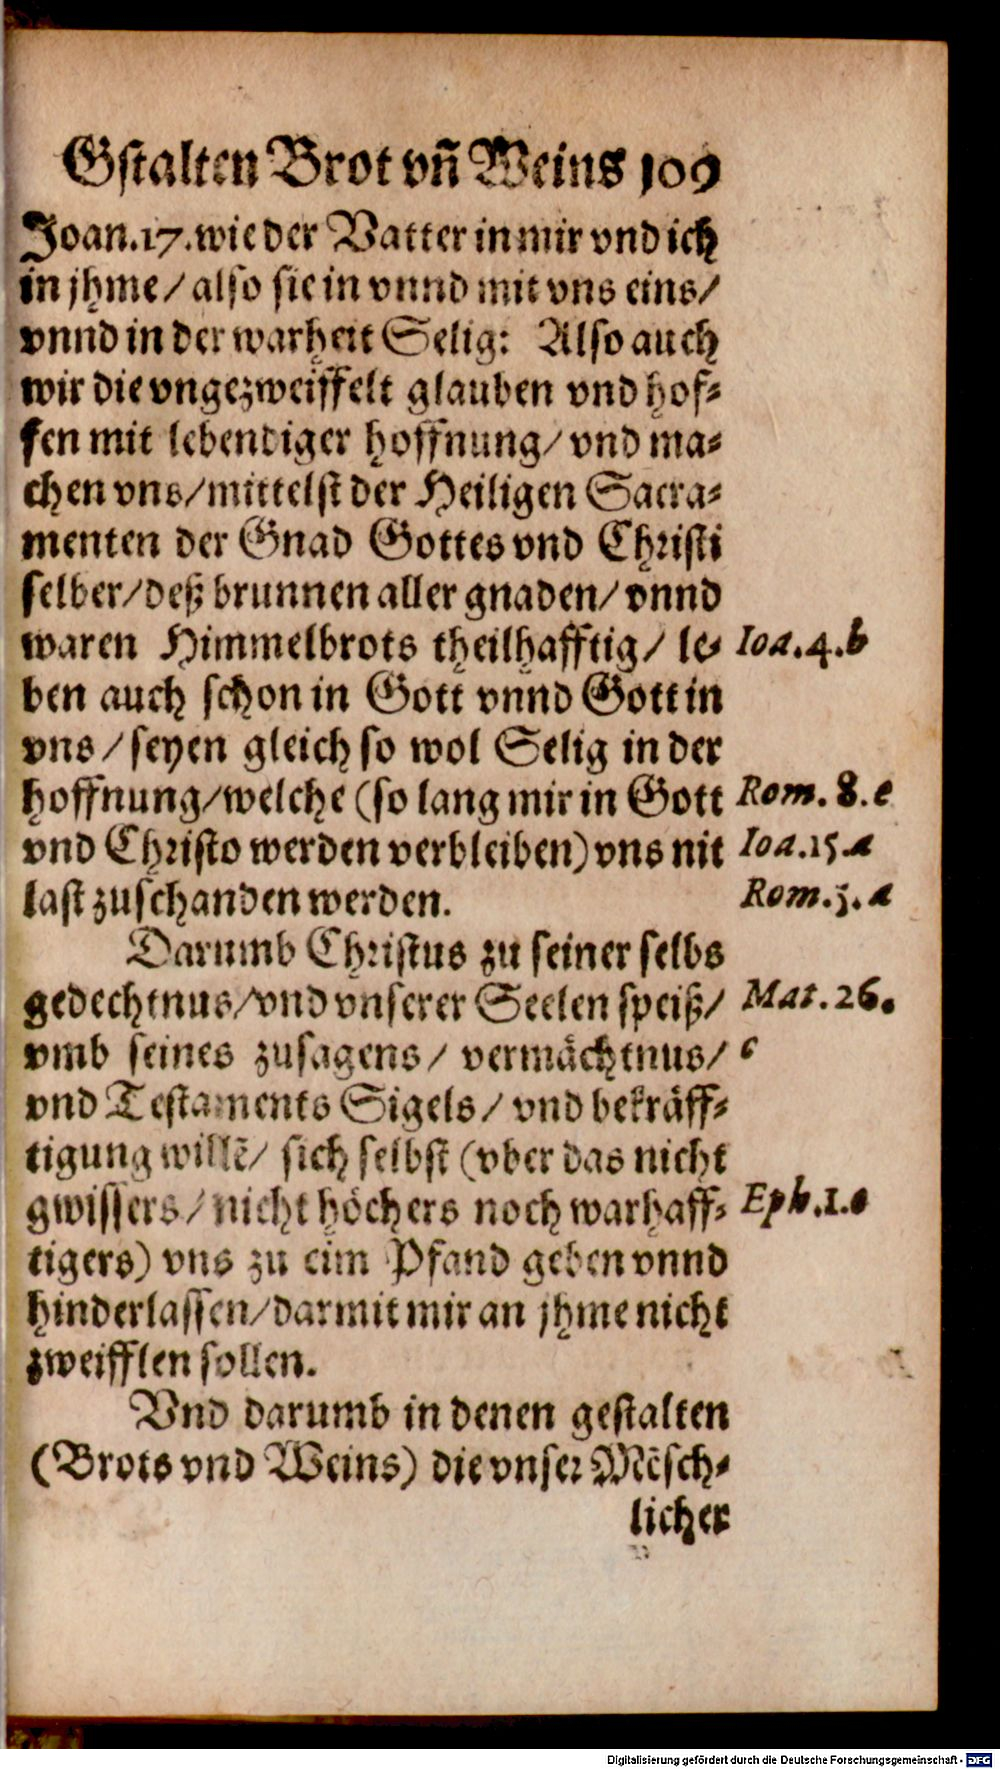 Gstalten Brot vñ Weins 109
Joan.17. wie der Vatter in mir vnd ich
in jhme / also sie in vnnd mit vns eins /
vnnd in der warheit Selig: Also auch
wir die vngezweiffelt glauben vnd hof-
fen mit lebendiger hoffnung / vnd ma-
chen vns / mittelst der Heiligen Sacra-
menten der Gnad Gottes vnd Christi
selber / deß brunnen aller gnaden / vnnd
waren Himmelbrots theilhafftig / le- Ioa.4.b
ben auch schon in Gott vnnd Gott in
vns / seyen gleich so wol Selig in der
hoffnung / welche (so lang mir in Gott Rom. 8. e
vnd Christo werden verbleiben) vns nit Ioa.15.a
last zuschanden werden. Rom.5.a
Darumb Christus zu seiner selbs
gedechtnus / vnd vnserer Seelen speiß / Mat.26.
vmb seines zusagens / vermächtnus / c
vnd Testaments Sigels / vnd bekräff-
tigung willē / sich selbst (vber das nicht
gwissers / nicht höchers noch warhaff- Eph.1.
tigers) vns zu eim Pfand geben vnnd
hinderlassen / darmit mir an jhme nicht
zweifflen sollen.
Vnd darumb in denen gestalten
(Brots vnd Weins) die vnser Mēsch-
licher
Digitalisierung gefördert durch die Deutsche Forschungsgemeinschaft - DFG